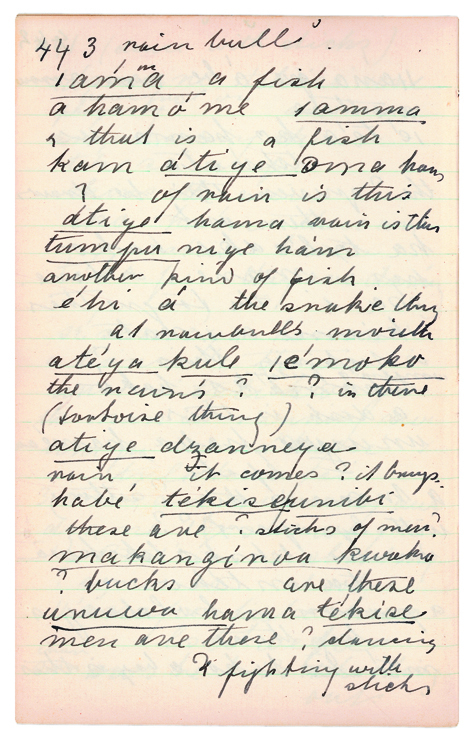 44 3 rain bull
iamma a fish
a hamó me iamma
that is a fish
kam átiye
? of rain is this
átiye hama rain is this
tumpu niye hám
another kind of fish
éhi á the snake thing
at rainbulls mouth
atéya kule iémoko
the rain's ? ? in there
(tortoise thing)
atiye dzanneya
rain it comes ? it brings
habé tékise
these are ? sticks of men?
makanginoa kwaka
? bucks are these
unuwa hama tékise
men are these ? dancing
& fighting with
sticks